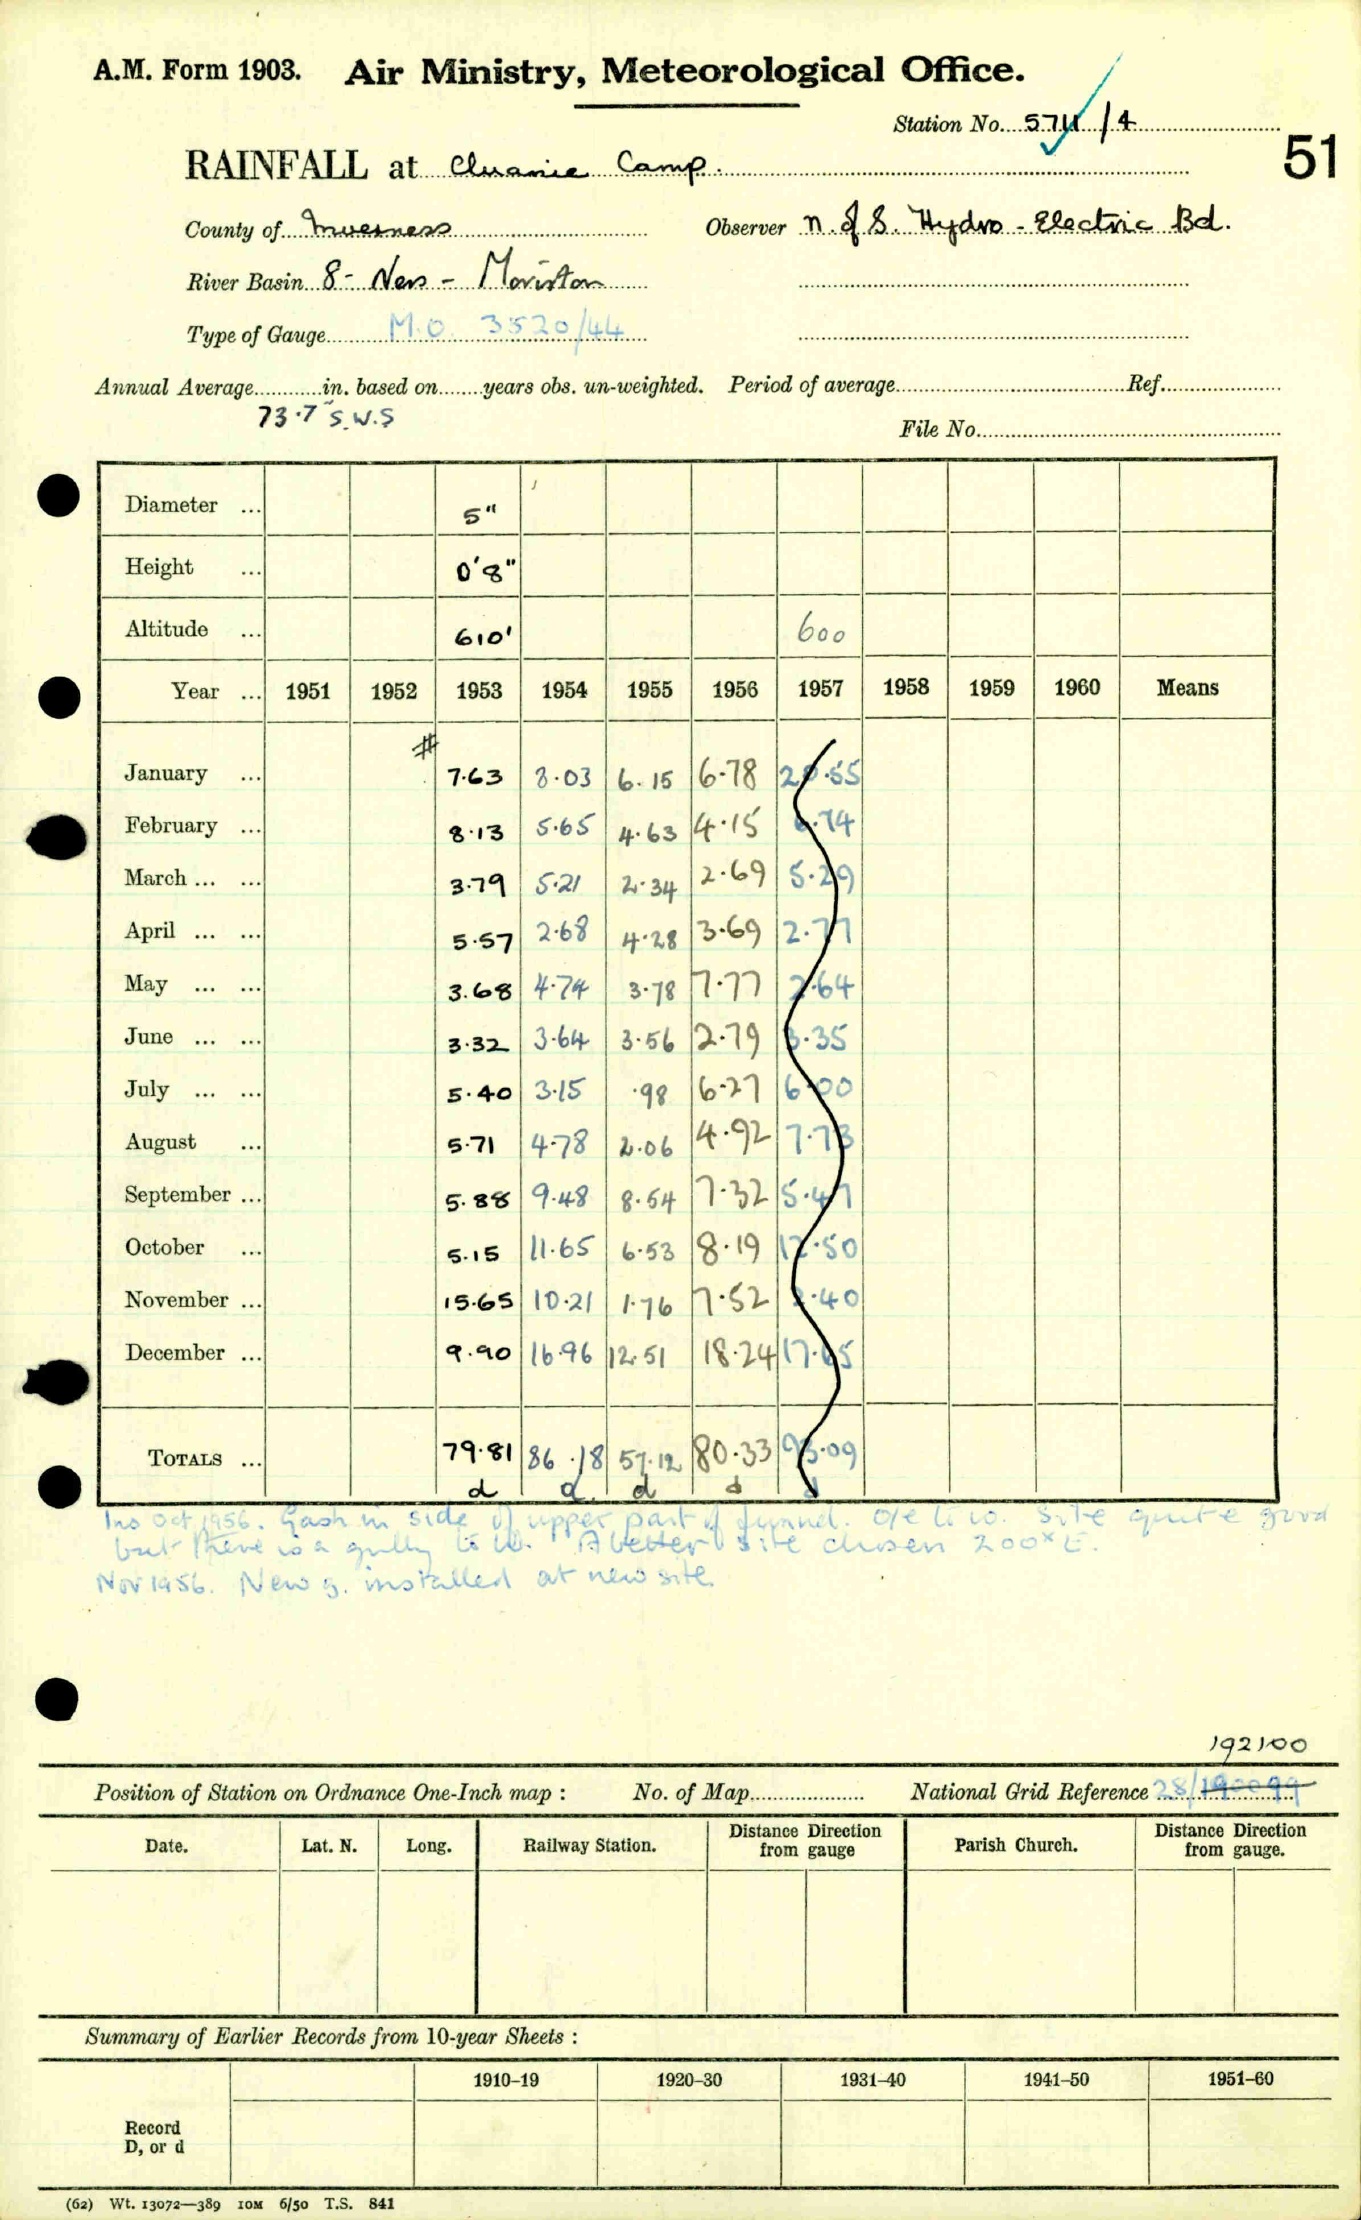 A.M. Form 1903. Air Ministry, Meteorological Office.
Station No. 5711/4
51
RAINFALL at Cluanie Camp.
County of Inverness Observer N. of S. Hydro-Electric Bd.
River Basin 8- Ness - Moriston
Type of Gauge M.O. 3520/44
Annual Average in. based on years obs. un-weighted. Period of average Ref.
73.7" S.W.S
File No.
Diameter ... 5"
Height ... 0'8"
Altitude ... 610' 600
Year ... 1951 1952 1953 1954 1955 1956 1957 1958 1959 1960 Means
January ... 7.63 8.03 6.15 6.78 20.55
February ... 8.13 5.65 4.63 4.15 6.74
March ... ... 3.79 5.21 2.34 2.69 5.29
April ... ... 5.57 2.68 4.28 3.69 2.77
May ... ... 3.68 4.74 3.78 7.77 2.64
June ... ... 3.32 3.64 3.56 2.79 3.35
July ... ... 5.40 3.15 .98 6.27 6.00
August ... 5.71 4.78 2.06 4.92 7.73
September ... 5.88 9.48 8.54 7.32 5.47
October ... 5.15 11.65 6.53 8.19 12.50
November ... 15.65 10.21 1.76 7.52 2.40
December ... 9.90 16.96 12.51 18.24 17.65
TOTALS ... 79.81 86.18 57.12 80.33 93.09
d d d d d
Ins Oct 1956. Gash in side of upper part of funnel. O/e to W. Site quite good
but there is a gully to W. A better site chosen 200x E.
Nov 1956. New g. installed at new site.
192100
Position of Station on Ordnance One-Inch map : No. of Map National Grid Reference 28/190099
Date. Lat. N. Long. Railway Station. Distance from Direction gauge Parish Church. Distance from Direction gauge.
Summary of Earlier Records from 10-year Sheets :
1910–19 1920–30 1931–40 1941–50 1951–60
Record
D, or d
(62) Wt. 13072—389 10M 6/50 T.S. 841